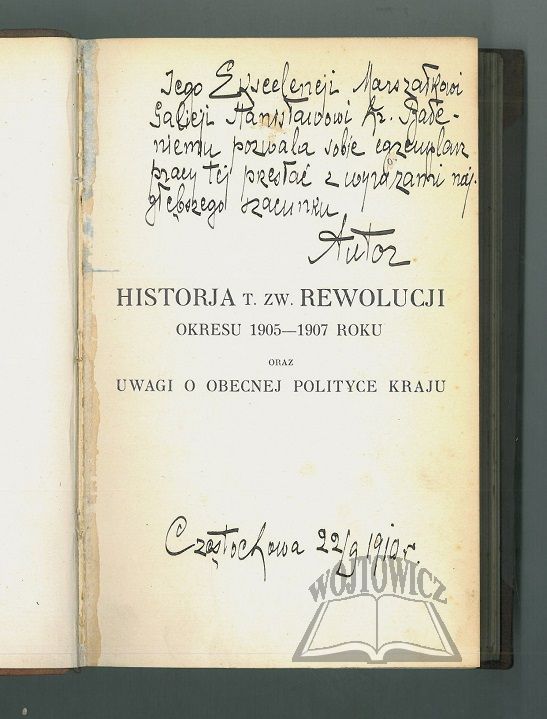 Jego Exscelencji Marszałkowi
Galicji Stanisławowi hr. Bade-
niemu pozwala sobie egzemplarz
pracy tej przesłać z wyrazami naj-
głębszego szacunku
Autor
HISTORJA T. ZW. REWOLUCJI
OKRESU 1905—1907 ROKU
ORAZ
UWAGI O OBECNEJ POLITYCE KRAJU
Częstochowa 22/9 1910 r.
WÓJTOWICZ